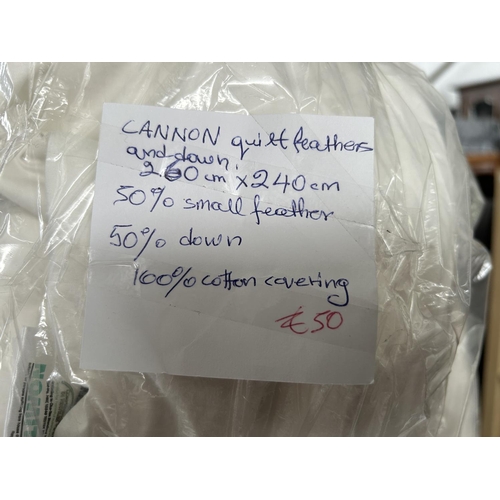 CANNON quilt feathers
and down.
260cm x 240cm
50% small feather
50% down
100% cotton covering
£50